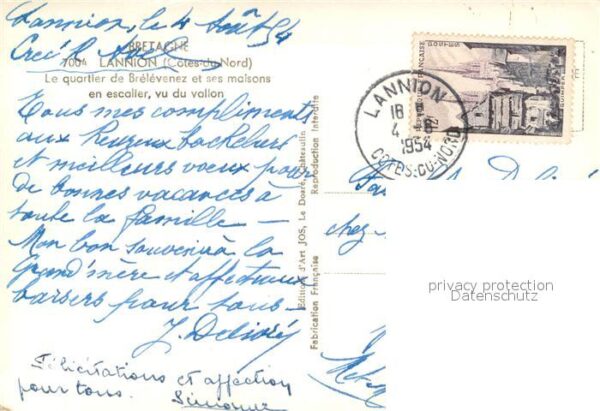 Lannion, le 4 Août 54
BRETAGNE
7004 LANNION (Côtes-du-Nord)
Le quartier de Brélévenez et ses maisons
en escalier, vu du vallon
Tous mes compliments
aux heureux bacheliers
et meilleurs voeux pour
de bonnes vacances à
toute la famille —
Mon bon souvenir à la
Grand'mère et affectueux
baisers pour tous —
Félicitations et affection
pour tous. Simone
Editions d'Art JOS, Le Doaré, Châteaulin
Reproduction Interdite
Fabrication Française
LANNION
18
4 - 8
1954
COTES-DU-NORD
chez
privacy protection
Datenschutz